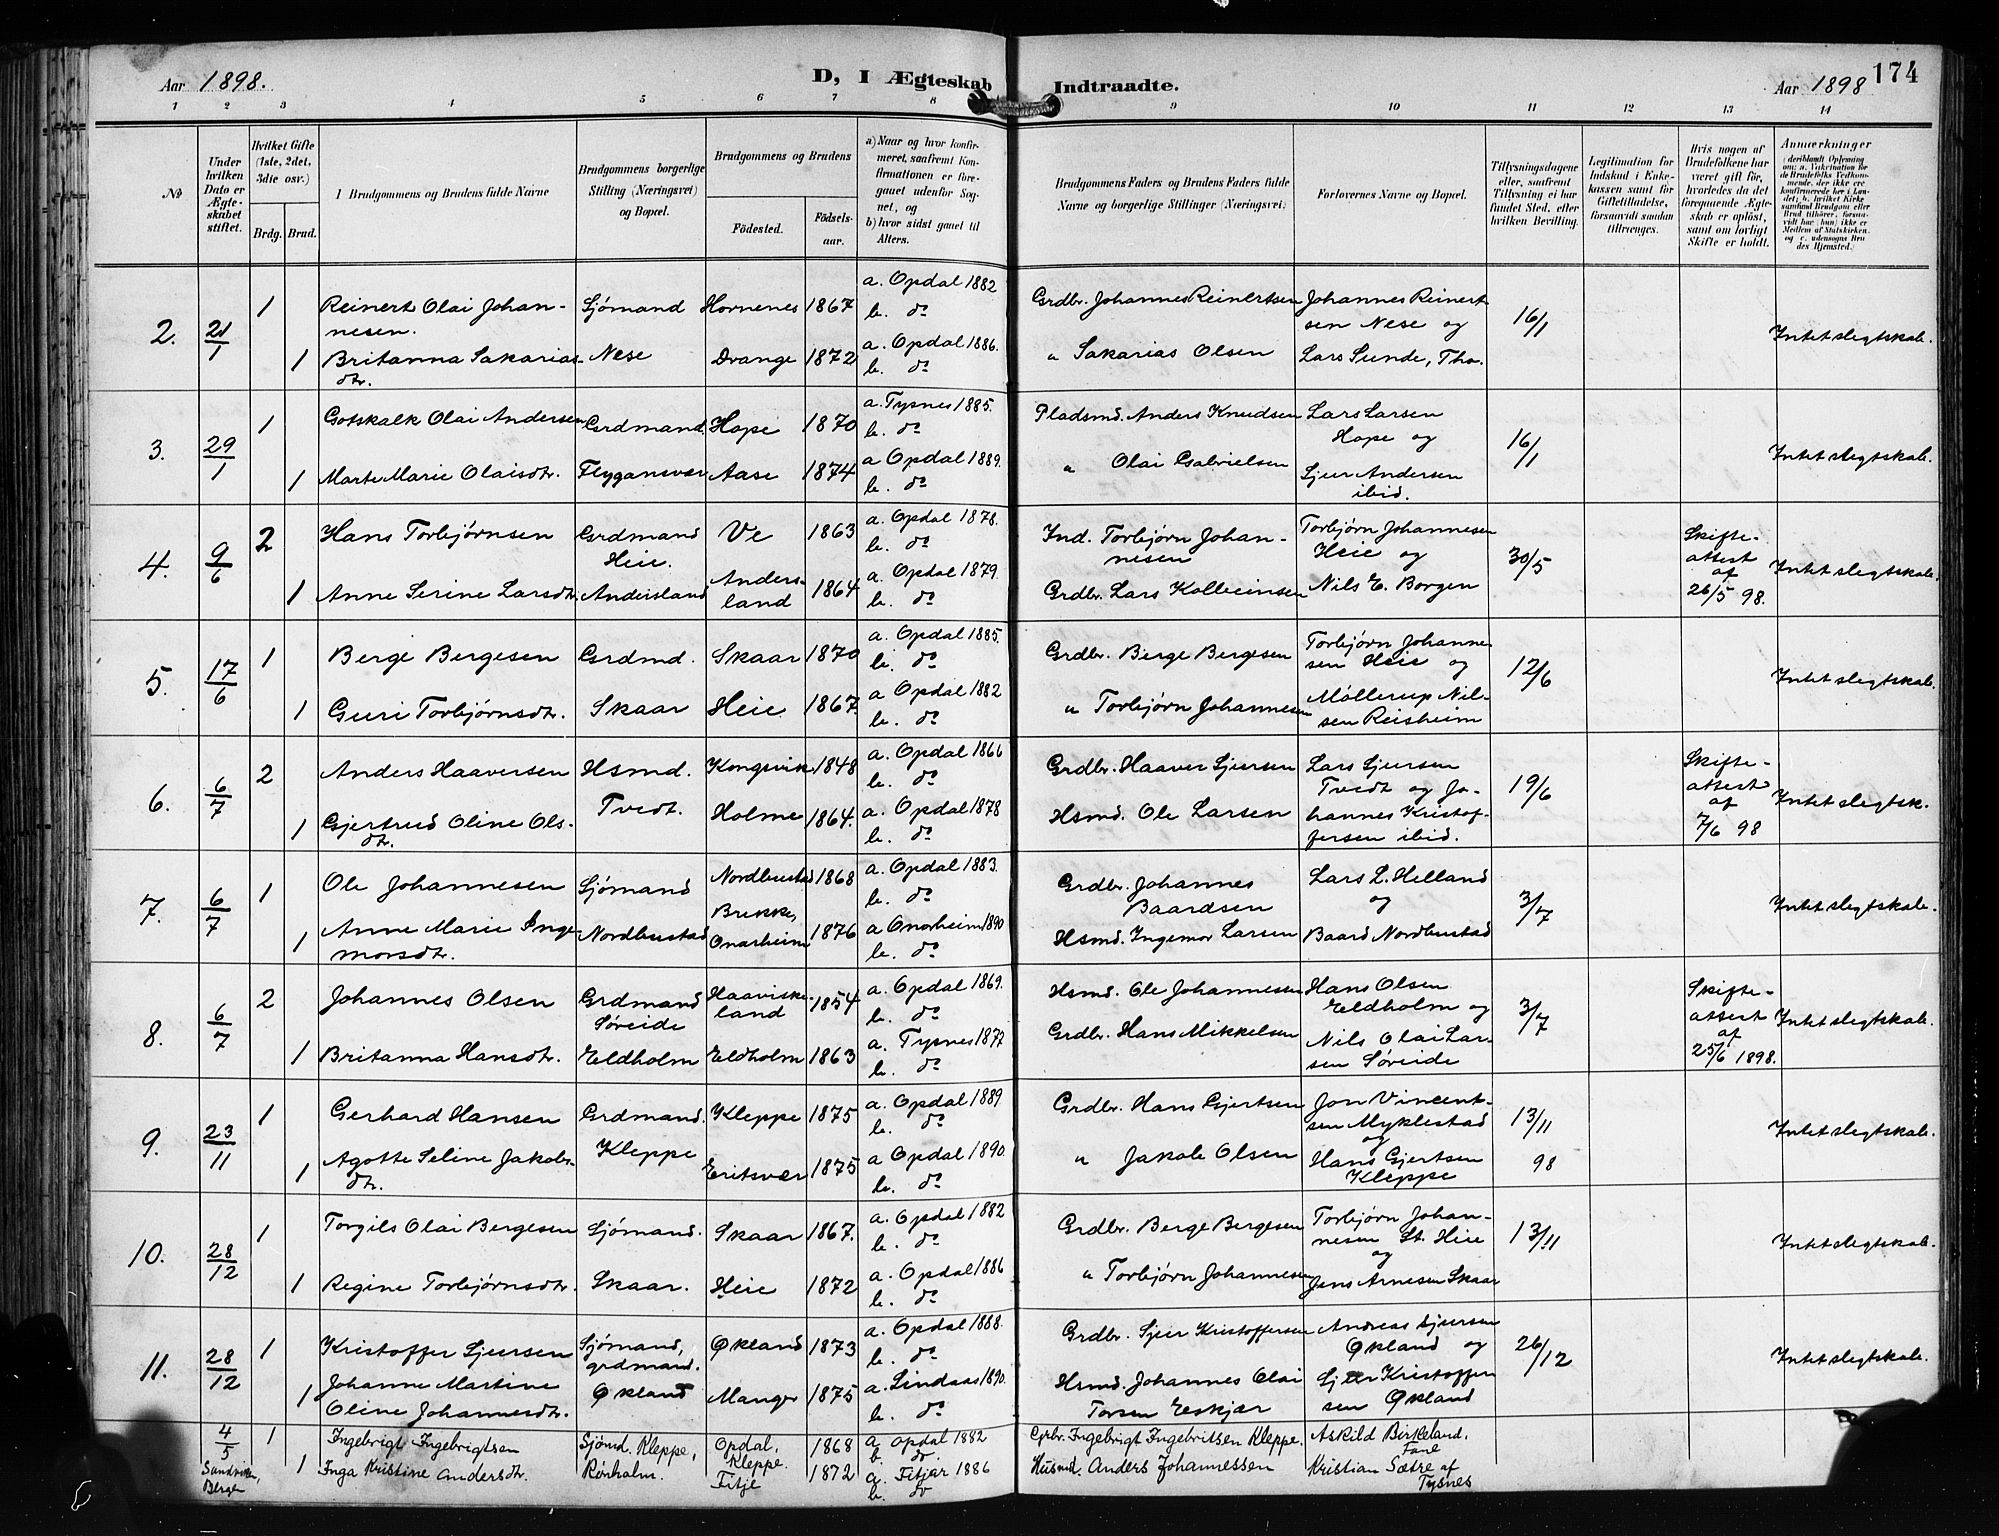 Aar 1898.
D, I Ægteskab Indtraadte.
Aar 1898 174
1 2 3 4 5 6 7 8 9 10 11 12 13 14
No
Under hvilken Dato er Ægteskabet stiftet.
Hvilket Gifte (1ste, 2det, 3die osv.)
Brdg. Brud.
Brudgommens og Brudens fulde Navne
Brudgommens borgerlige Stilling (Næringsvei) og Bopæl.
Brudgommens og Brudens
Fødested. Fødselsaar.
a) Naar og hvor konfirmeret, saafremt Konfirmationen er foregaaet udenfor Sognet, og
b) hvor sidst gaaet til Alters.
Brudgommens Faders og Brudens Faders fulde Navne og borgerlige Stillinger (Næringsvei)
Forlovernes Navne og Bopæl.
Tillysningsdagene eller, saafremt Tillysning ei har fundet Sted, efter hvilken Bevilling.
Legitimation for Indskud i Enkekassen samt for Giftetilladelse, forsaavidt saadan tiltrænges.
Hvis nogen af Brudefolkene har været gift før, hvorledes da det foregaaende Ægteskab er opløst, samt om lovligt Skifte er holdt.
Anmærkninger
2. 21/1 1 Reinert Olai Johannesen. Sjømand Hornenes 1867 a. Opdal 1882 b. do Grdbr. Johannes Reinertsen Johannes Reinertsen Nese og 16/1 Intet slegtskab.
1 Britanna Sakariasdtr. Nese Drange 1872 a. Opdal 1886. b. do " Sakarias Olsen Lars Sunde, Tho.
3. 29/1 1 Gotskalk Olai Andersen Grdmand Hope 1870 a. Tysnes 1885. b. do Pladsmd. Anders Knudsen Lars Larsen Hope og 16/1 Intet slegtskab.
1 Marte Marie Olaisdtr. Flygansvær Aase 1874 a Opdal 1889. b. do " Olai Gabrielsen Sjur Andersen ibid.
4. 9/6 2 Hans Torbjørnsen Grdmand Heie. Ve 1863 a. Opdal 1878. b. do Ind. Torbjørn Johannesen Torbjørn Johannesen Heie og 30/5 Skifteattest af 26/5 98. Intet slegtskab.
1 Anne Serine Larsdtr. Andersland Andersland 1864 a. Opdal 1879. b. do Grdbr. Lars Kolbeinsen Nils E. Borgen
5. 17/6 1 Berge Bergesen Grdmd. Skaar 1870 a. Opdal 1885. b. do Grdbr. Berge Bergesen Torbjørn Johannesen Heie og 12/6 Intet slegtskab.
1 Guri Torbjørnsdtr. Skaar Heie 1867. a. Opdal 1882 b. do " Torbjørn Johannesen Møllerup Nilsen Reisheim
6. 6/7 2 Anders Haaversen Hsmd. Kongsvik 1848 a. Opdal 1866 b. do Grdbr. Haaver Sjursen Lars Sjursen Tvedt og Johannes Kristoffersen ibid. 19/6 Skifteattest af 7/6 98 Intet slegtsk.
1 Gjertrud Oline Olsdtr. Tvedt. Holme 1864. a. Opdal 1878 b. do Hsmd. Ole Larsen
7. 6/7 1 Ole Johannesen Sjømand Nordbustad 1868 a. Opdal 1883. b. do Grdbr. Johannes Baardsen Lars L. Helland og 3/7 Intet slegtskab.
1 Anne Marie Ingemorsdtr. Nordbustad Brekke, Onarheim 1876 a Onarheim 1890 b. do Hsmd. Ingemor Larsen Baard Nordbustad
8. 6/7 2 Johannes Olsen Grdmand Søreide Haaviskeland 1854 a. Opdal 1869. b. do Hsmd. Ole Johannesen Hans Olsen Eldholm og 3/7 Skifteattest af 25/6 1898. Intet slegtskab.
1 Britanna Hansdtr. Eldholm Eldholm 1863 a. Tysnes 1877 b. do Grdbr. Hans Mikkelsen Nils Olai Larsen Søreide
9. 23/11 1 Gerhard Hansen Grdmand Kleppe 1875 a. Opdal 1889 b. do Grdbr. Hans Gjertsen Jon Vincentsen Myklestad og 13/11 98 Intet slegtskab.
1 Agotte Seline Jakobsdtr. Kleppe Eritsvær 1875 a Opdal 1890. b. do " Jakob Olsen Hans Gjertsen Kleppe
10. 28/12 1 Torgils Olai Bergesen Sjømand. Skaar 1867. a. Opdal 1882 b. do Grdbr. Berge Bergesen Torbjørn Johannesen St. Heie og 13/11 Intet slegtskab.
1 Regine Torbjørnsdtr. Skaar. Heie 1872 a. Opdal 1886 b. do " Torbjørn Johannesen Jens Arnesen Skaar
11. 28/12 1 Kristoffer Sjursen Sjømand, grdmand. Økland 1873 a. Opdal 1888. b. do Grdbr. Sjur Kristoffersen Andreas Sjursen Økland og 26/12 Intet slegtskab.
1 Johanne Martine Oline Johannesdtr. Økland Manger 1875 a. Lindaas 1890. b. do Hsmd. Johannes Olai Torsen Eskjær Sjur Kristoffersen Økland
4/5 Sandviken, Bergen 1 Ingebrigt Ingebrigtsen Sjømd. Kleppe, Opdal, Kleppe. 1868 a. Opdal 1882 b. do. Grbr. Ingebrigt Ingebritsen Kleppe. Askild Birkeland, Fane
1 Inga Kristine Andersdtr. Rørholm. Fitje 1872 a. Fitjar 1886 b. do Husmd. Anders Johannessen Kristian Sætre af Tysnes